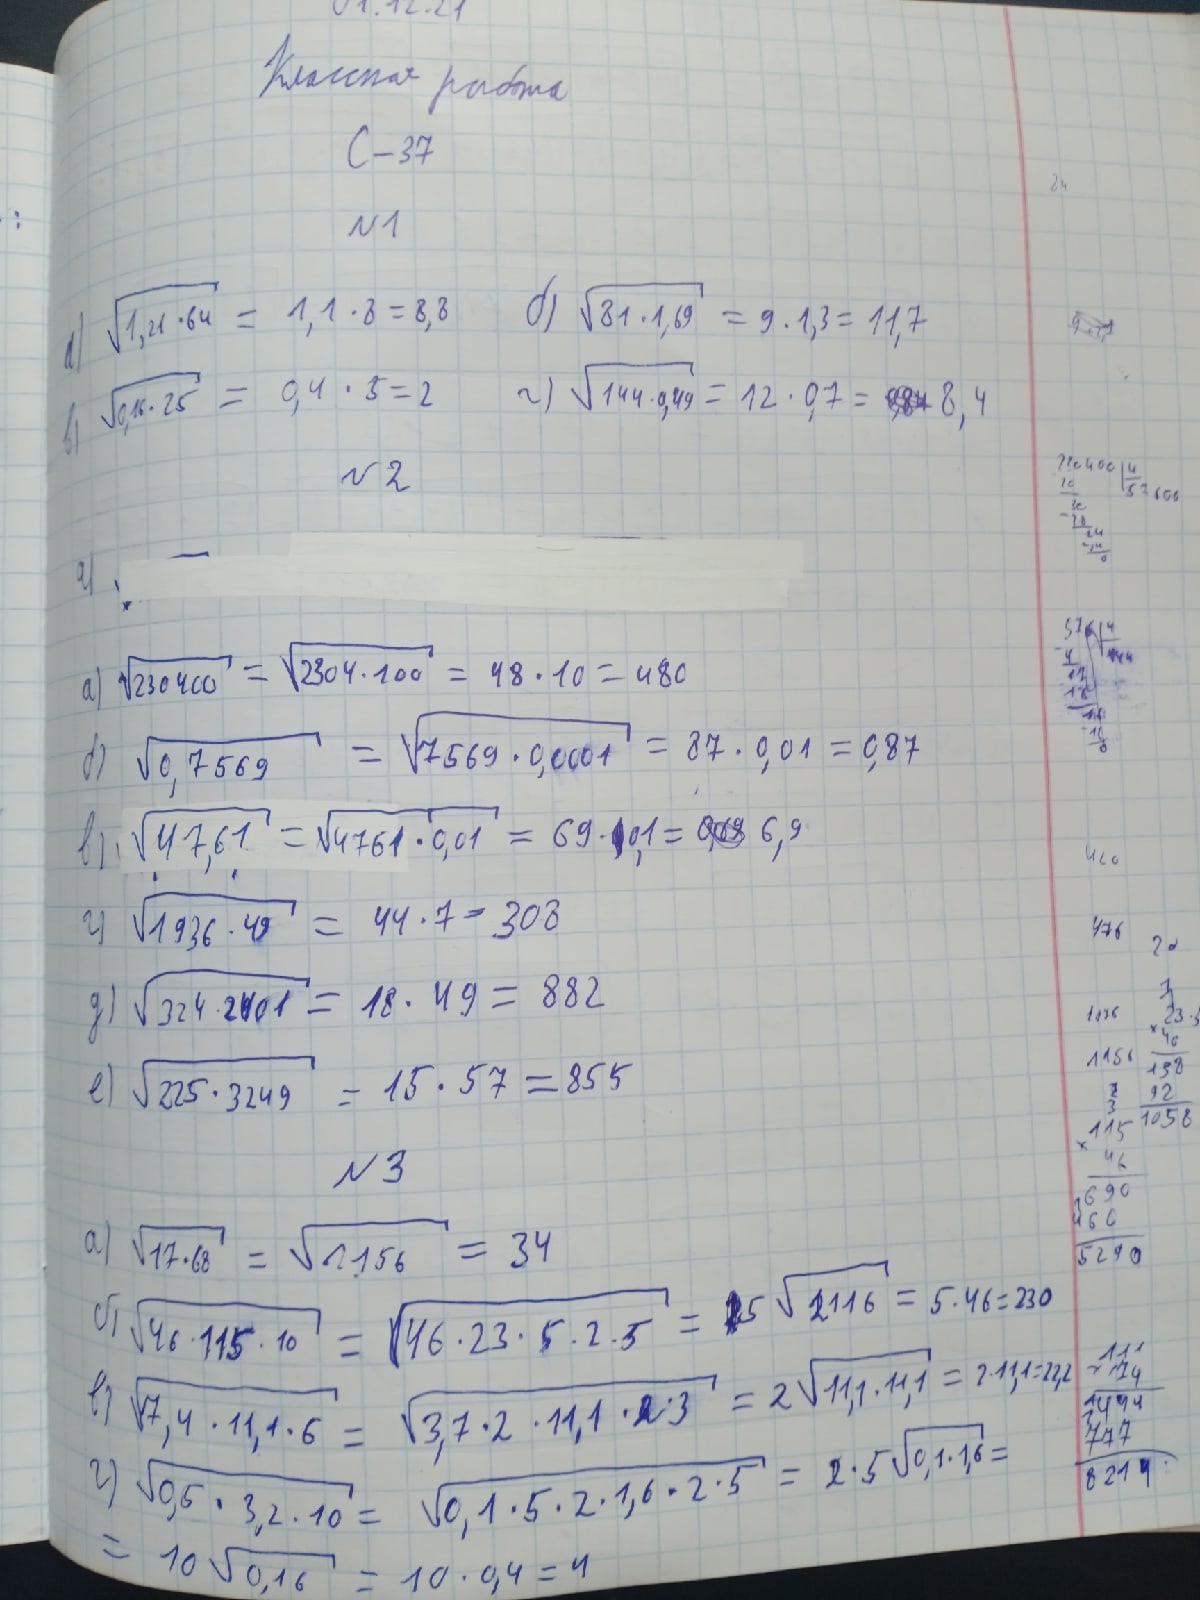 01.12.21
Классная работа
С-37
№1
а) √1,21·64 = 1,1·8=8,8 б) √81·1,69 = 9·1,3=11,7
в) √0,16·25 = 0,4·5=2 г) √144·0,49 = 12·0,7= 8,4
№2
а)
а) √230400 = √2304·100 = 48·10=480
б) √0,7569 = √7569·0,0001 = 87·0,01=0,87
в) √47,61 = √4761·0,01 = 69·0,1= 6,9
г) √1936·49 = 44·7=308
д) √324·2401 = 18·49=882
е) √225·3249 = 15·57=855
№3
а) √17·68 = √1156 = 34
б) √46·115·10 = √46·23·5·2·5 = 5√2116 = 5·46=230
в) √7,4·11,1·6 = √3,7·2·11,1·2·3 = 2√11,1·11,1 = 2·11,1=22,2
г) √0,5·3,2·10 = √0,1·5·2·1,6·2·5 = 2·5√0,1·1,6 =
= 10√0,16 = 10·0,4=4
24
420
476
1156
115
46
690
460
5290
46
138
92
1058
111
74
777
8214